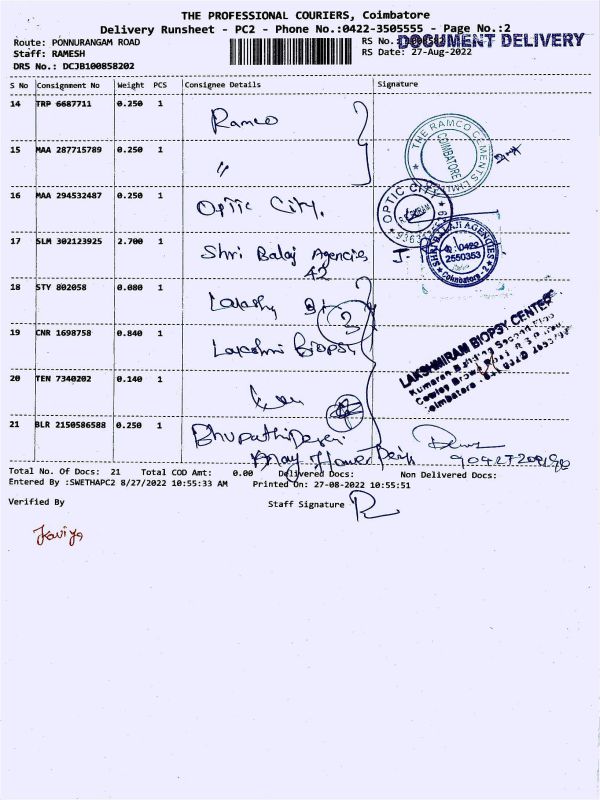 THE PROFESSIONAL COURIERS, Coimbatore
Delivery Runsheet - PC2 - Phone No.:0422-3505555 - Page No.:2
Route: PONNURANGAM ROAD
RS No.:
DOCUMENT DELIVERY
Staff: RAMESH
RS Date: 27-Aug-2022
DRS No.: DCJB100858202
S No Consignment No Weight PCS Consignee Details Signature
14 TRP 6687711 0.250 1 Ramco
THE RAMCO CEMENTS LIMITED
COIMBATORE
15 MAA 287715789 0.250 1 "
16 MAA 294532487 0.250 1 Optic City.
OPTIC CITY
17 SLM 302123925 2.700 1 Shri Balaj Agencies
42
SHRI BALAJI AGENCIES
0422
2550353
Coimbatore - 2
18 STY 802058 0.080 1
19 CNR 1698758 0.840 1 Lakshmi Biopsy
3
LAKSHMIRAM BIOPSY CENTER
Kumaran Building Second Floor
20 TEN 7340202 0.140 1
21 BLR 2150586588 0.250 1
Total No. Of Docs: 21 Total COD Amt: 0.00 Delivered Docs: Non Delivered Docs:
Entered By :SWETHAPC2 8/27/2022 10:55:33 AM Printed On: 27-08-2022 10:55:51
Verified By Staff Signature
Kaviya